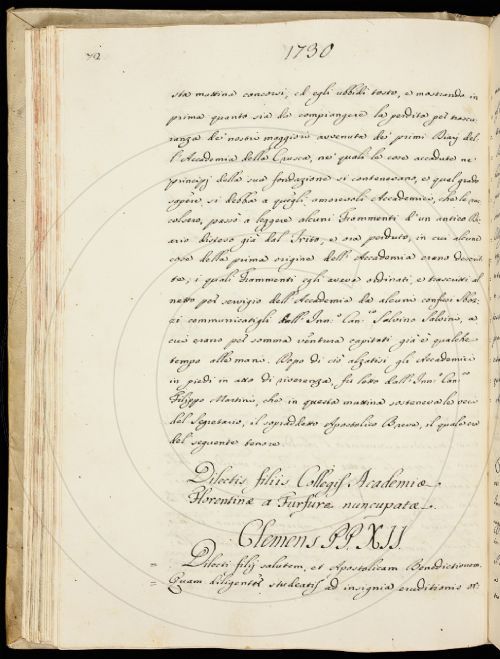 72
1730
sta mattina concorsi, ed egli ubbidì tosto, e mostrando in
prima quanto sia da compiangere la perdita per trascu-
ranza de' nostri maggiori avvenuta de' primi Diarj del-
l'Accademia della Crusca, ne' quali le cose accadute ne'
principj della sua fondazione si contenevano, e qual grado
sapere si debba a quegli amorevoli Accademici, che le rac-
colsero, passò a leggere alcuni Frammenti d'un antico Di-
ario disteso già dal Trito, e ora perduto, in cui alcune
cose della prima origine dell'Accademia erano descrit-
te; i quali Frammenti egli aveva ordinati, e trascritti al
netto per servigio dell'Accademia da alcuni confusi Sboz-
zi comunicatigli dall'Inn.º Can.co Salvino Salvini, a
cui erano per somma ventura capitati già è qualche
tempo alle mani. Dopo di ciò alzatisi gli Accademici
in piedi in atto di riverenza, fu letto dall'Inn.º Can.co
Filippo Martini, che in questa mattina sosteneva le veci
del Segretario, il sopraddetto Apostolico Breve, il quale era
del seguente tenore.
Dilectis filiis Collegis Academiæ
Florentinæ a Furfure nuncupatæ.
Clemens P.P. XII.
= Dilecti filij salutem, et Apostolicam Benedictionem.
= Quam diligenter studeatis ad insignia eruditionis or-